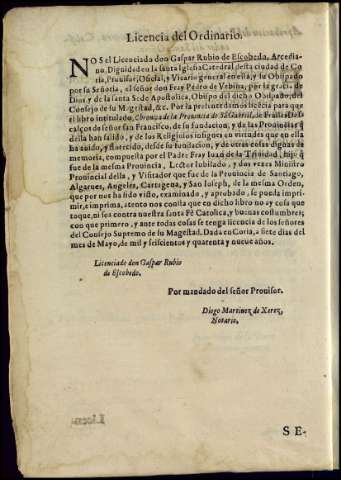 Licencia del Ordinario.
NOS el Licenciado don Gaspar Rubio de Escobedo, Arcedia-
no, Dignidad en la santa Iglesia Catedral desta ciudad de Co-
ria, Prouisor, Oficial, y Vicario general en ella, y su Obispado
por su Señoria, el señor don Fray Pedro de Vrbina, por la gracia de
Dios y de la santa Sede Apostolica, Obispo del dicho Obispado, del
Consejo de su Magestad, &c. Por la presente damos licecia para que
el libro intitulado, Chronica de la Prouincia de S. Gabriel, de Frailes Des
calços de señor san Francisco, de su fundacion, y de las Prouincias q
della han salido, y de los Religiosos insignes en virtudes que en ella
ha auido, y florecido, desde su fundacion, y de otras cosas dignas de
memoria, compuesta por el Padre Fray Iuan de la Trinidad, hijo q
fue de la mesma Prouincia, Lector Iubilado, y dos vezes Ministro
Prouincial della, y Visitador que fue de la Prouincia de Santiago,
Algarues, Angeles, Cartagena, y San Ioseph, de la mesma Orden,
que por nos ha sido visto, examinado, y aprobado, se pueda impri-
mir, e imprima, atento nos consta que en dicho libro no ay cosa que
toque, ni sea contra nuestra santa Fè Catolica, y buenas costumbres;
con que primero, y ante todas cosas se tenga licencia de los señores
del Consejo Supremo de su Magestad. Dada en Coria, a siete dias del
mes de Mayo, de mil y seiscientos y quarenta y nueue años.
Licenciado don Gaspar Rubio
de Escobedo.
Por mandado del señor Prouisor.
Diego Martinez de Xerez,
Notario.
SE-